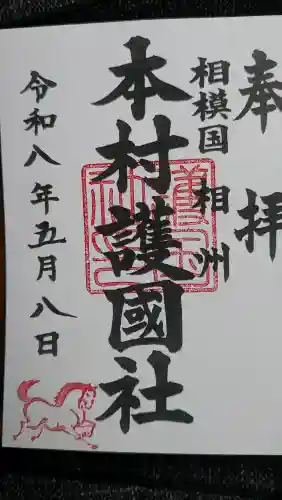 奉拝
相模国 相州
本村護國社
令和八年五月八日